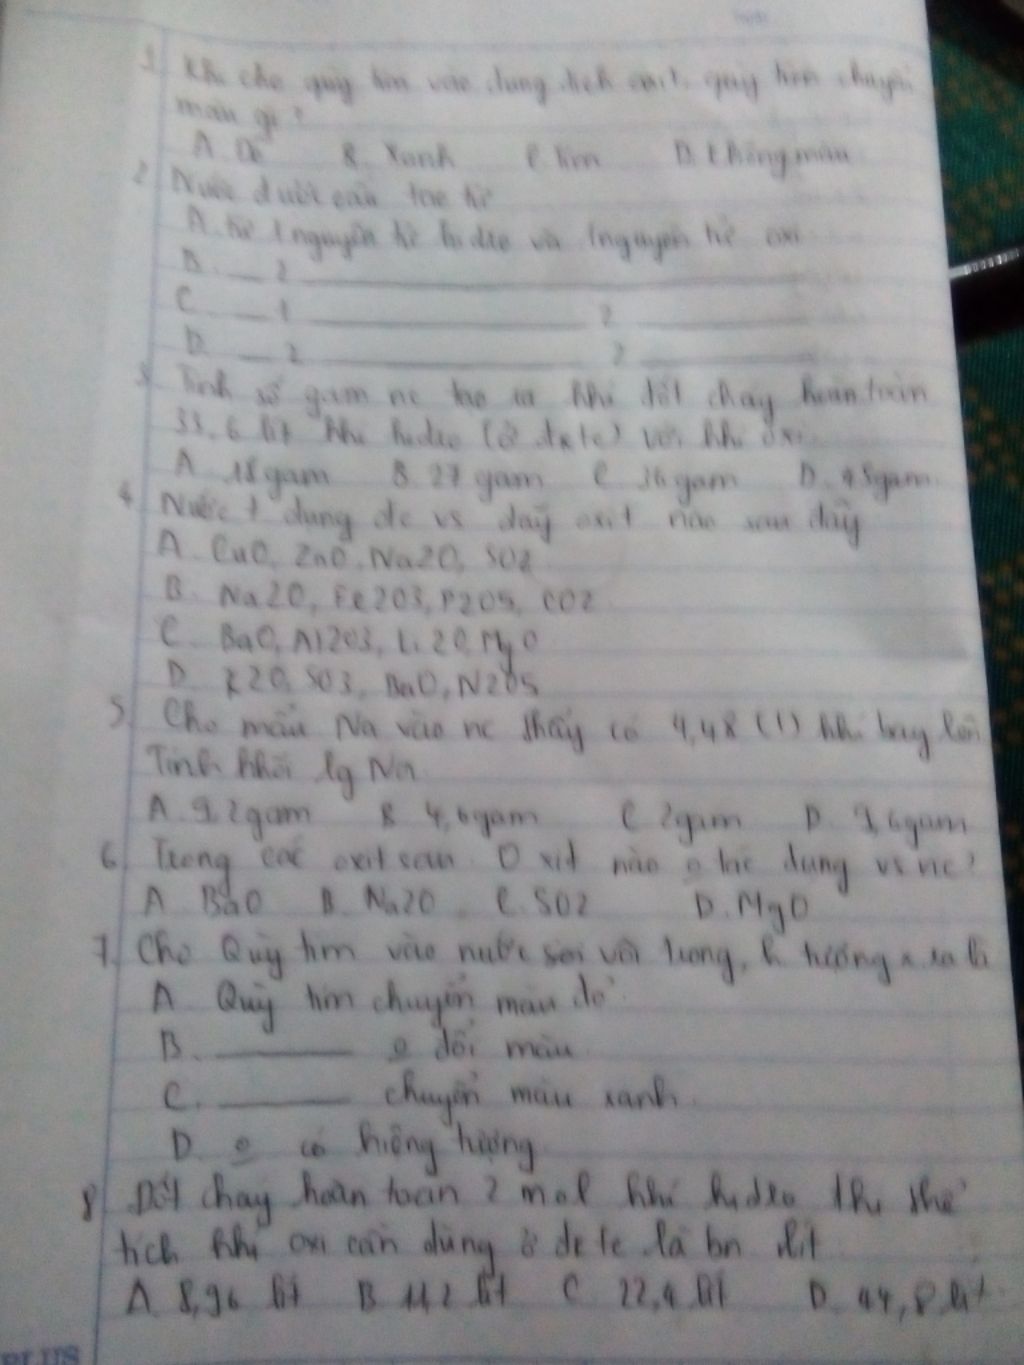 1. Khi cho quỳ tím vào dung dịch axit, quỳ tím chuyển
màu gì?
A. Đỏ B. Xanh C. tím D. Không màu
2. Nước được cấu tạo từ
A. từ 1 nguyên tử hidro và 1 nguyên tử oxi
B. __ 2 __
C. __ 1 __ 2 __
D. __ 2 __ 2 __
3. Tính số gam nc tạo ra khi đốt cháy hoàn toàn
33,6 lít khí hidro (ở đktc) với khí oxi
A. 18 gam B. 27 gam C. 36 gam D. 45 gam
4. Nước t dụng đc vs dãy oxit nào sau đây
A. CuO, ZnO, Na2O, SO2
B. Na2O, Fe2O3, P2O5, CO2
C. BaO, Al2O3, Li2O, MgO
D. K2O, SO3, BaO, N2O5
5. Cho mẩu Na vào nc thấy có 4,48 (l) khí bay lên
Tính khối lg Na
A. 9,2 gam B. 4,6 gam C. 2 gam D. 9,6 gam
6. Trong các oxit sau. Oxit nào o tác dụng vs nc?
A. BaO B. Na2O C. SO2 D. MgO
7. Cho Quỳ tím vào nước vôi trong, h tượng x ra là
A. Quỳ tím chuyển màu đỏ
B. __ o đổi màu
C. __ chuyển màu xanh
D. o có hiện tượng
8. Đốt cháy hoàn toàn 2 mol khí hidro thì thể
tích khí oxi cần dùng ở đktc là bn lít
A. 8,96 lít B. 11,2 lít C. 22,4 lít D. 44,8 lít